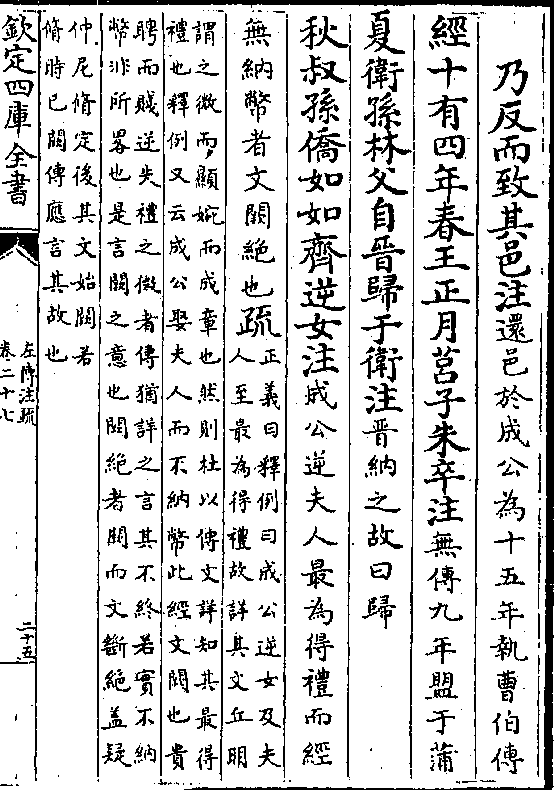 乃反而致其邑注還邑於成公為十五年執曹伯傳
經十有四年春王正月莒子朱卒注無傳九年盟于蒲
夏衛孫林父自晉歸于衛注晉納之故曰歸
秋叔孫僑如如齊逆女注成公逆夫人最為得禮而經
無納幣者文闕絶也疏
正義曰釋例曰成公逆女及夫
人至最為得禮故詳其文丘明
謂之微而顯婉而成章也然則杜以傳文詳知其最得
禮也釋例又云成公娶夫人而不納幣此經文闕也貴
聘而賤逆失禮之微者傳猶詳之言其不終若實不納
幣非所畧也是言闕之意也闕絶者闕而文斷絶蓋疑
仲尼脩定後其文始闕若
脩時已闕傳應言其故也
欽定四庫全書
左傳注疏
卷二十七
二十五